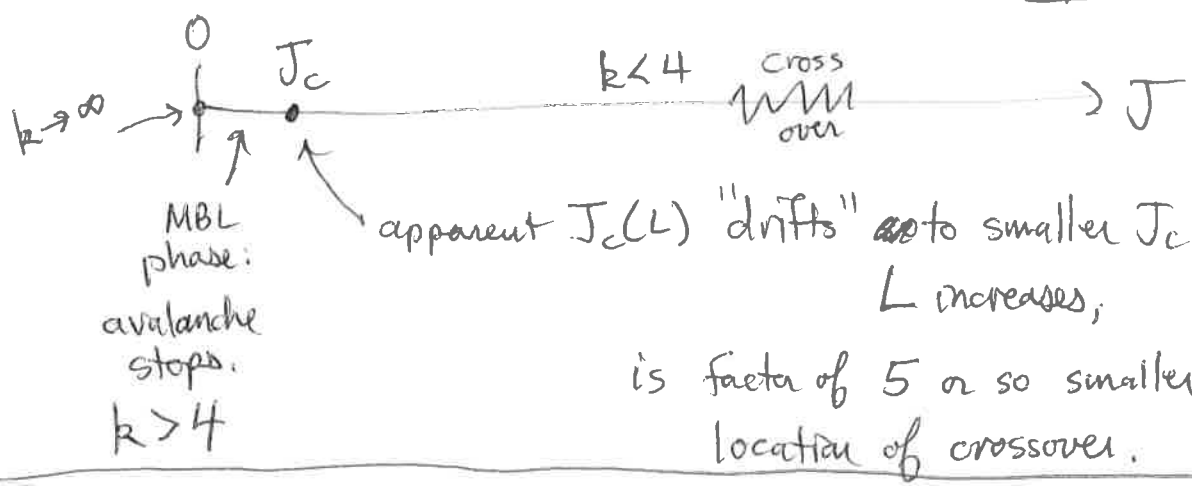 0
J_c
k<4
cross
over
J
k→∞
MBL
phase:
avalanche
stops.
k>4
apparent J_c(L) "drifts" to smaller J_c
L increases,
is factor of 5 or so smaller
location of crossover.